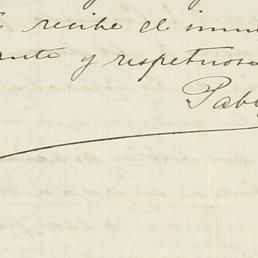 recibe el inmu
ante y respetuosa
Pab